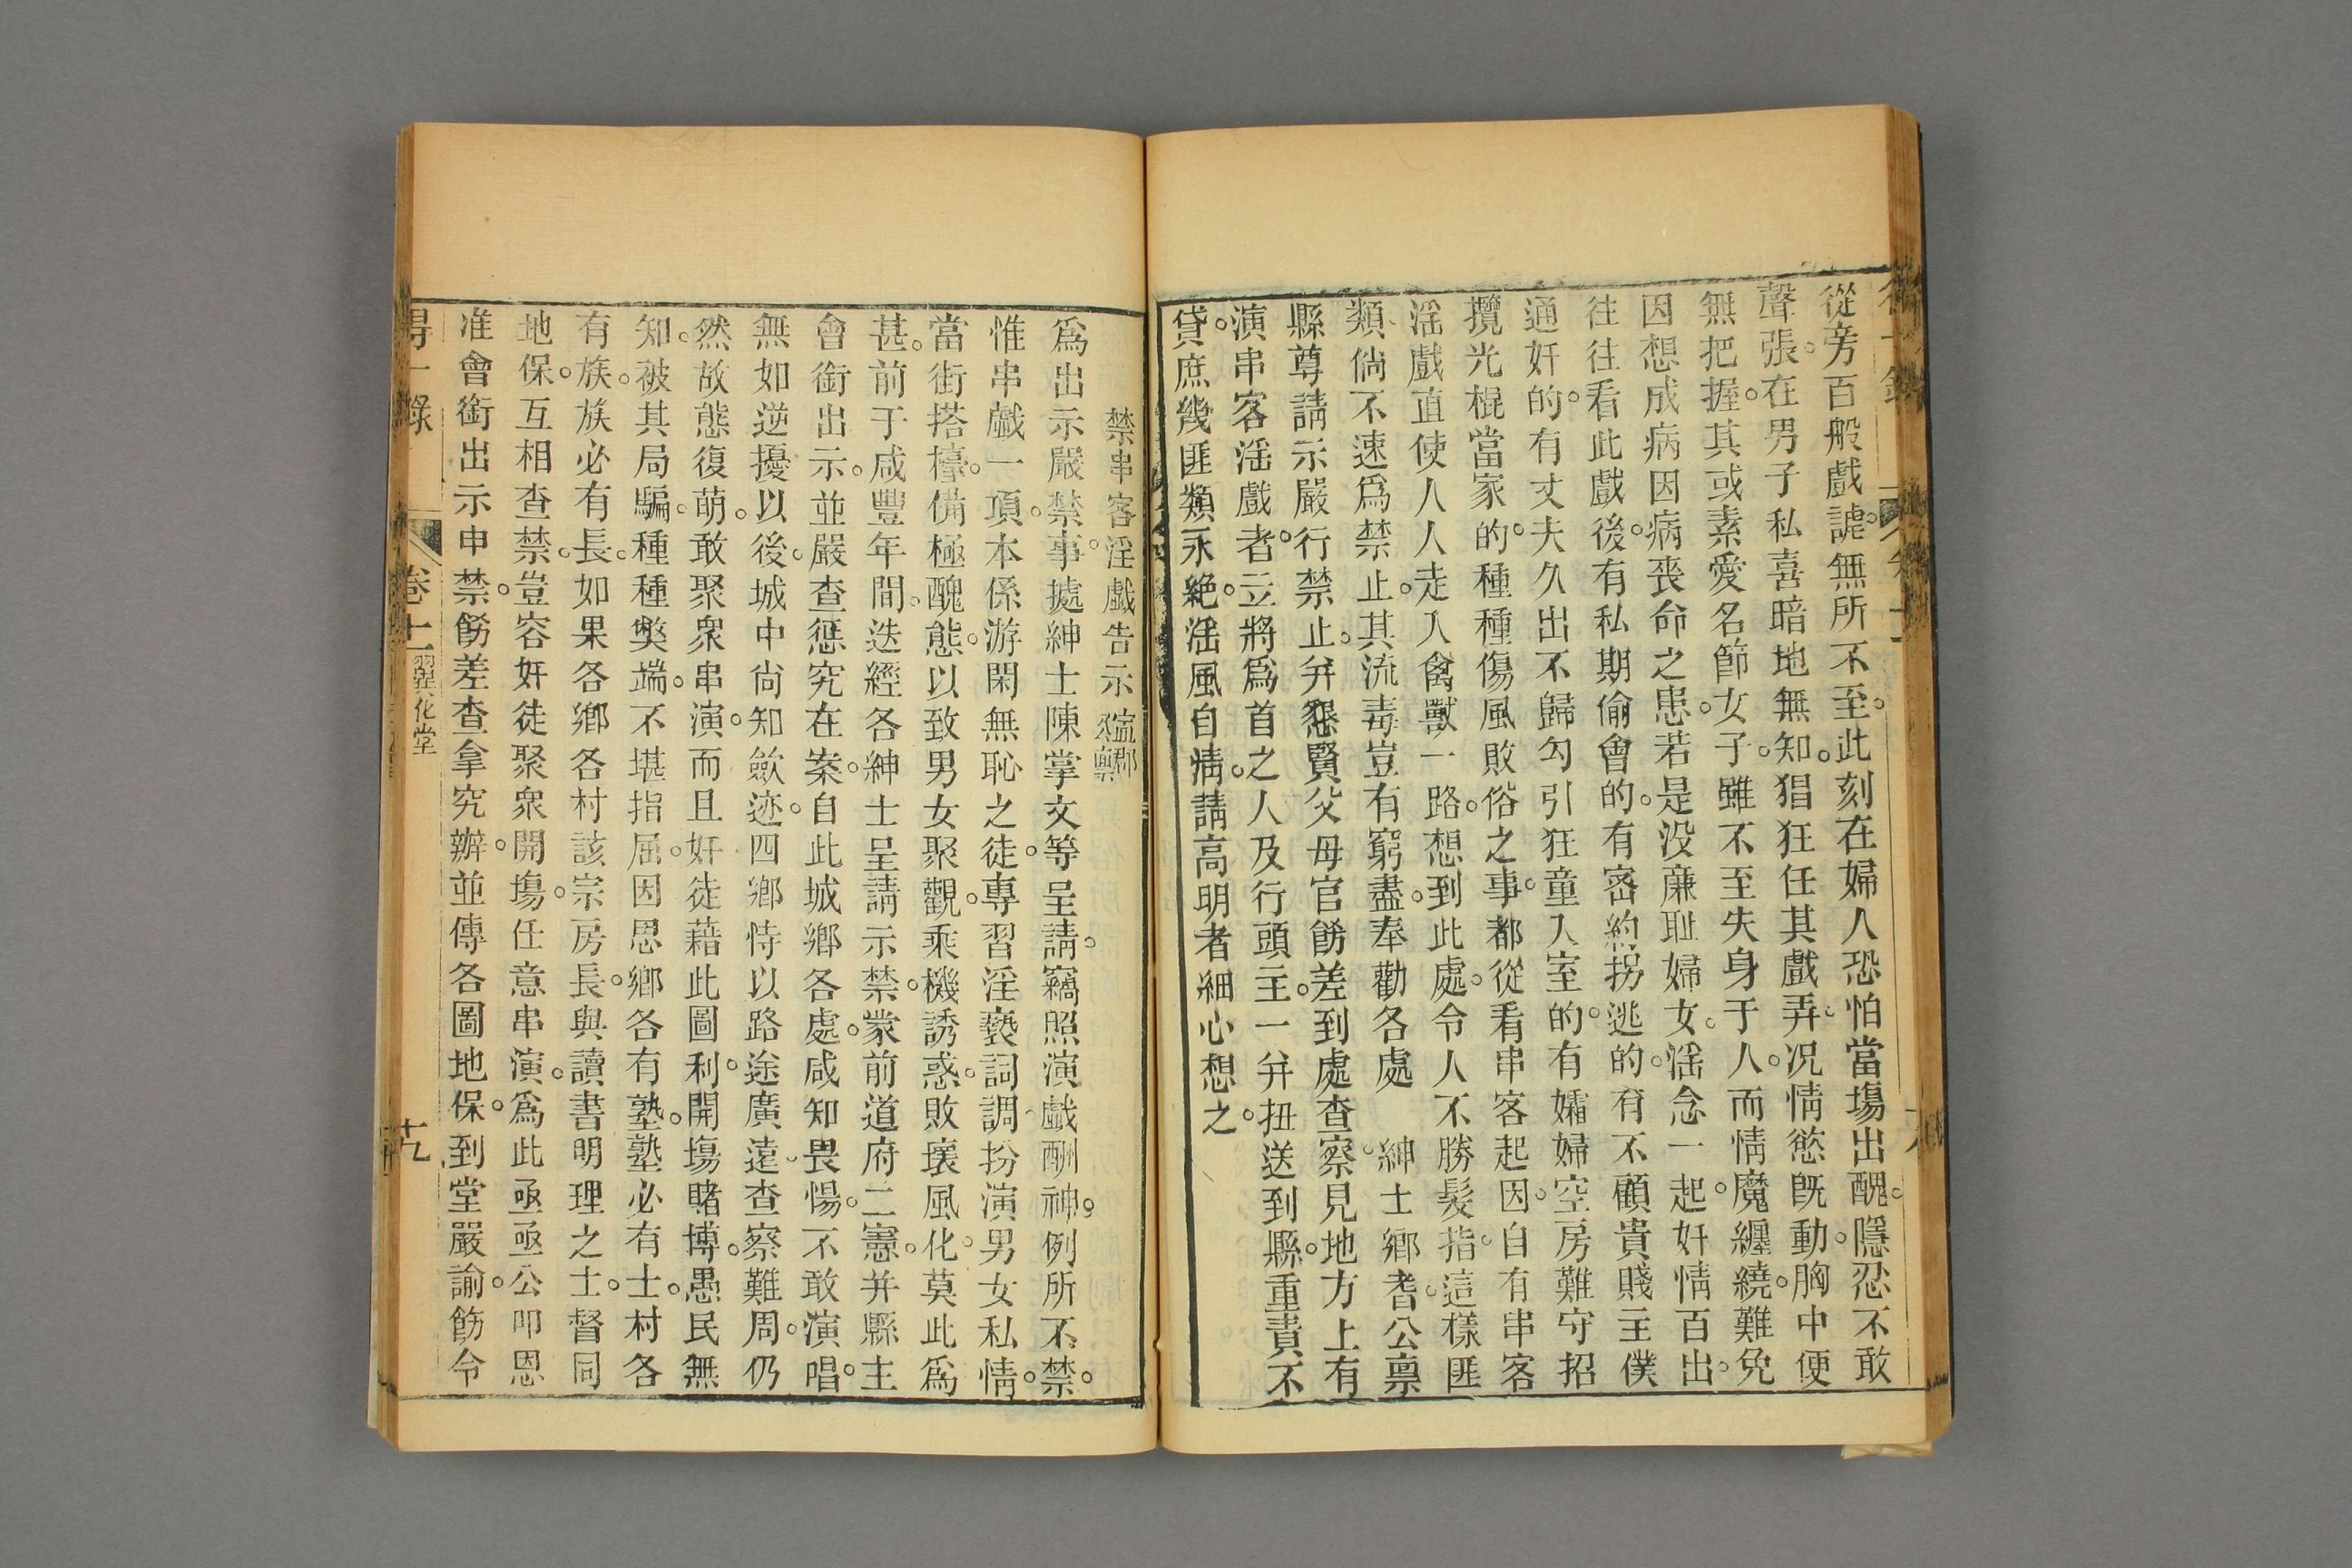 從旁百般戲謔。無所不至。此刻在婦人恐怕當塲出醜。隱忍不敢
聲張。在男子私喜暗地無知。猖狂任其戲弄。况情慾旣動。胸中便
無把握。其或素愛名節女子。雖不至失身于人。而情魔纏繞。難免
因想成病因病喪命之患。若是没廉耻婦女。淫念一起。奸情百出。
往往看此戲後。有私期偷會的。有宻約拐逃的。有不顧貴賤主僕
通奸的。有丈夫久出不歸勾引狂童入室的。有孀婦空房難守招
攬光棍當家的。種種傷風敗俗之事。都從看串客起因。自有串客
淫戲直使人人走入禽獸一路。想到此處。令人不勝髮指。這樣匪
類倘不速爲禁止。其流毒豈有窮盡。奉勸各處 紳士鄉耆。公禀
縣尊請示嚴行禁止。弁懇賢父母官飭差到處查察。見地方上有
演串客淫戲者。立將爲首之人及行頭主。一弁扭送到縣。重責不
貸。庶幾匪類永絶。淫風自淸。請高明者細心想之。
禁串客淫戲告示
爲出示嚴禁事。㨿紳士陳掌文等呈請。竊照演戲酬神。例所不禁。
惟串戲一項。本係游閑無恥之徒。專習淫褻詞調。扮演男女私情。
當街搭檯。備極醜態。以致男女聚觀。乘機誘惑。敗壞風化。莫此爲
甚。前于咸豐年間。迭經各紳士呈請示禁。蒙前道府二憲。并縣主
會銜出示。並嚴查懲究在案。自此城鄉各處。咸知畏惕。不敢演唱。
無如逆擾以後。城中尙知歛迹。四鄉恃以路途廣遠。查察難周。仍
然故態復萌。敢聚衆串演。而且奸徒藉此圖利。開塲賭博。愚民無
知。被其局騙。種種獘端。不堪指屈。因思鄉各有塾。塾必有士。村各
有族。族必有長。如果各鄉各村該宗房長。與讀書明理之士。督同
地保。互相查禁。豈容奸徒聚衆。開塲任意串演。爲此亟亟公叩恩
准會銜出示申禁。飭差查拿究辦。並傳各圖地保。到堂嚴諭。飭令
得一錄 卷十一 翼化堂 十九